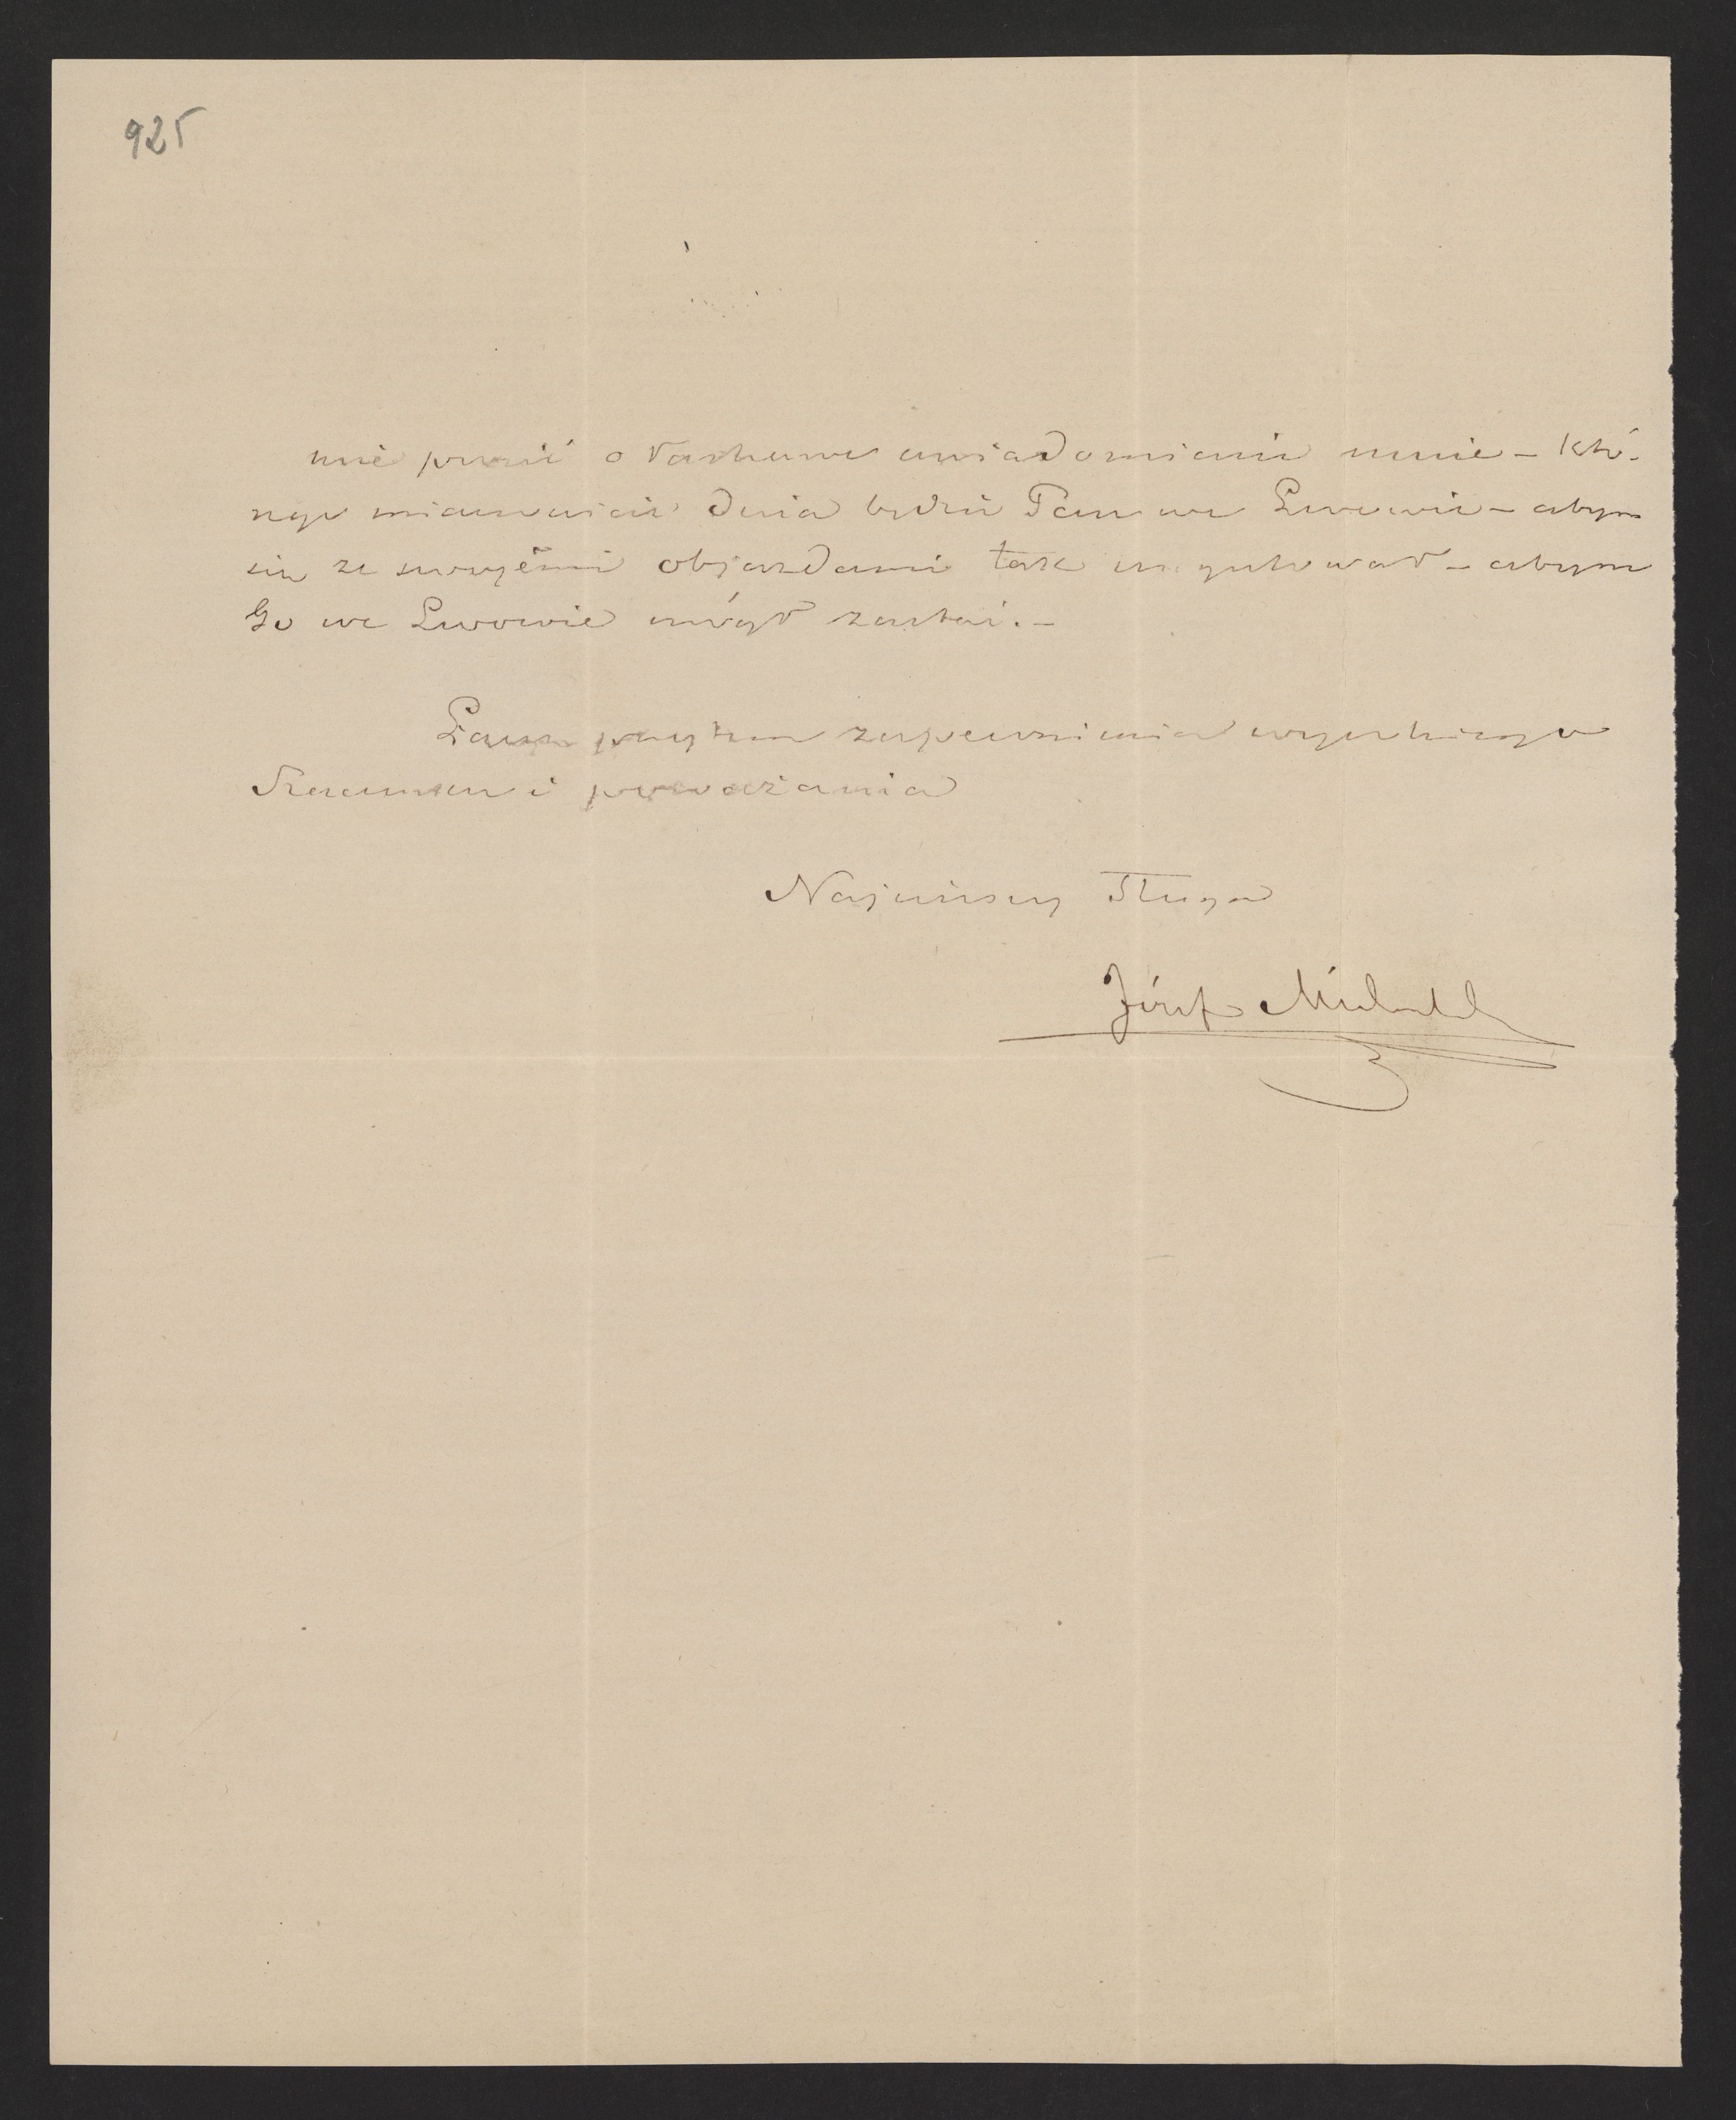 925
mie prosić o łaskawe uwiadomienie mnie – któ-
rego mianowicie dnia będzie Pan we Lwowie – abym
się ze swojémi objazdami tak uregulował – abym
Go we Lwowie mógł zastać. –
Łączę przytem zapewnienia wysokiego
Szacunku i poważania
Najniższy Sługa
Józef